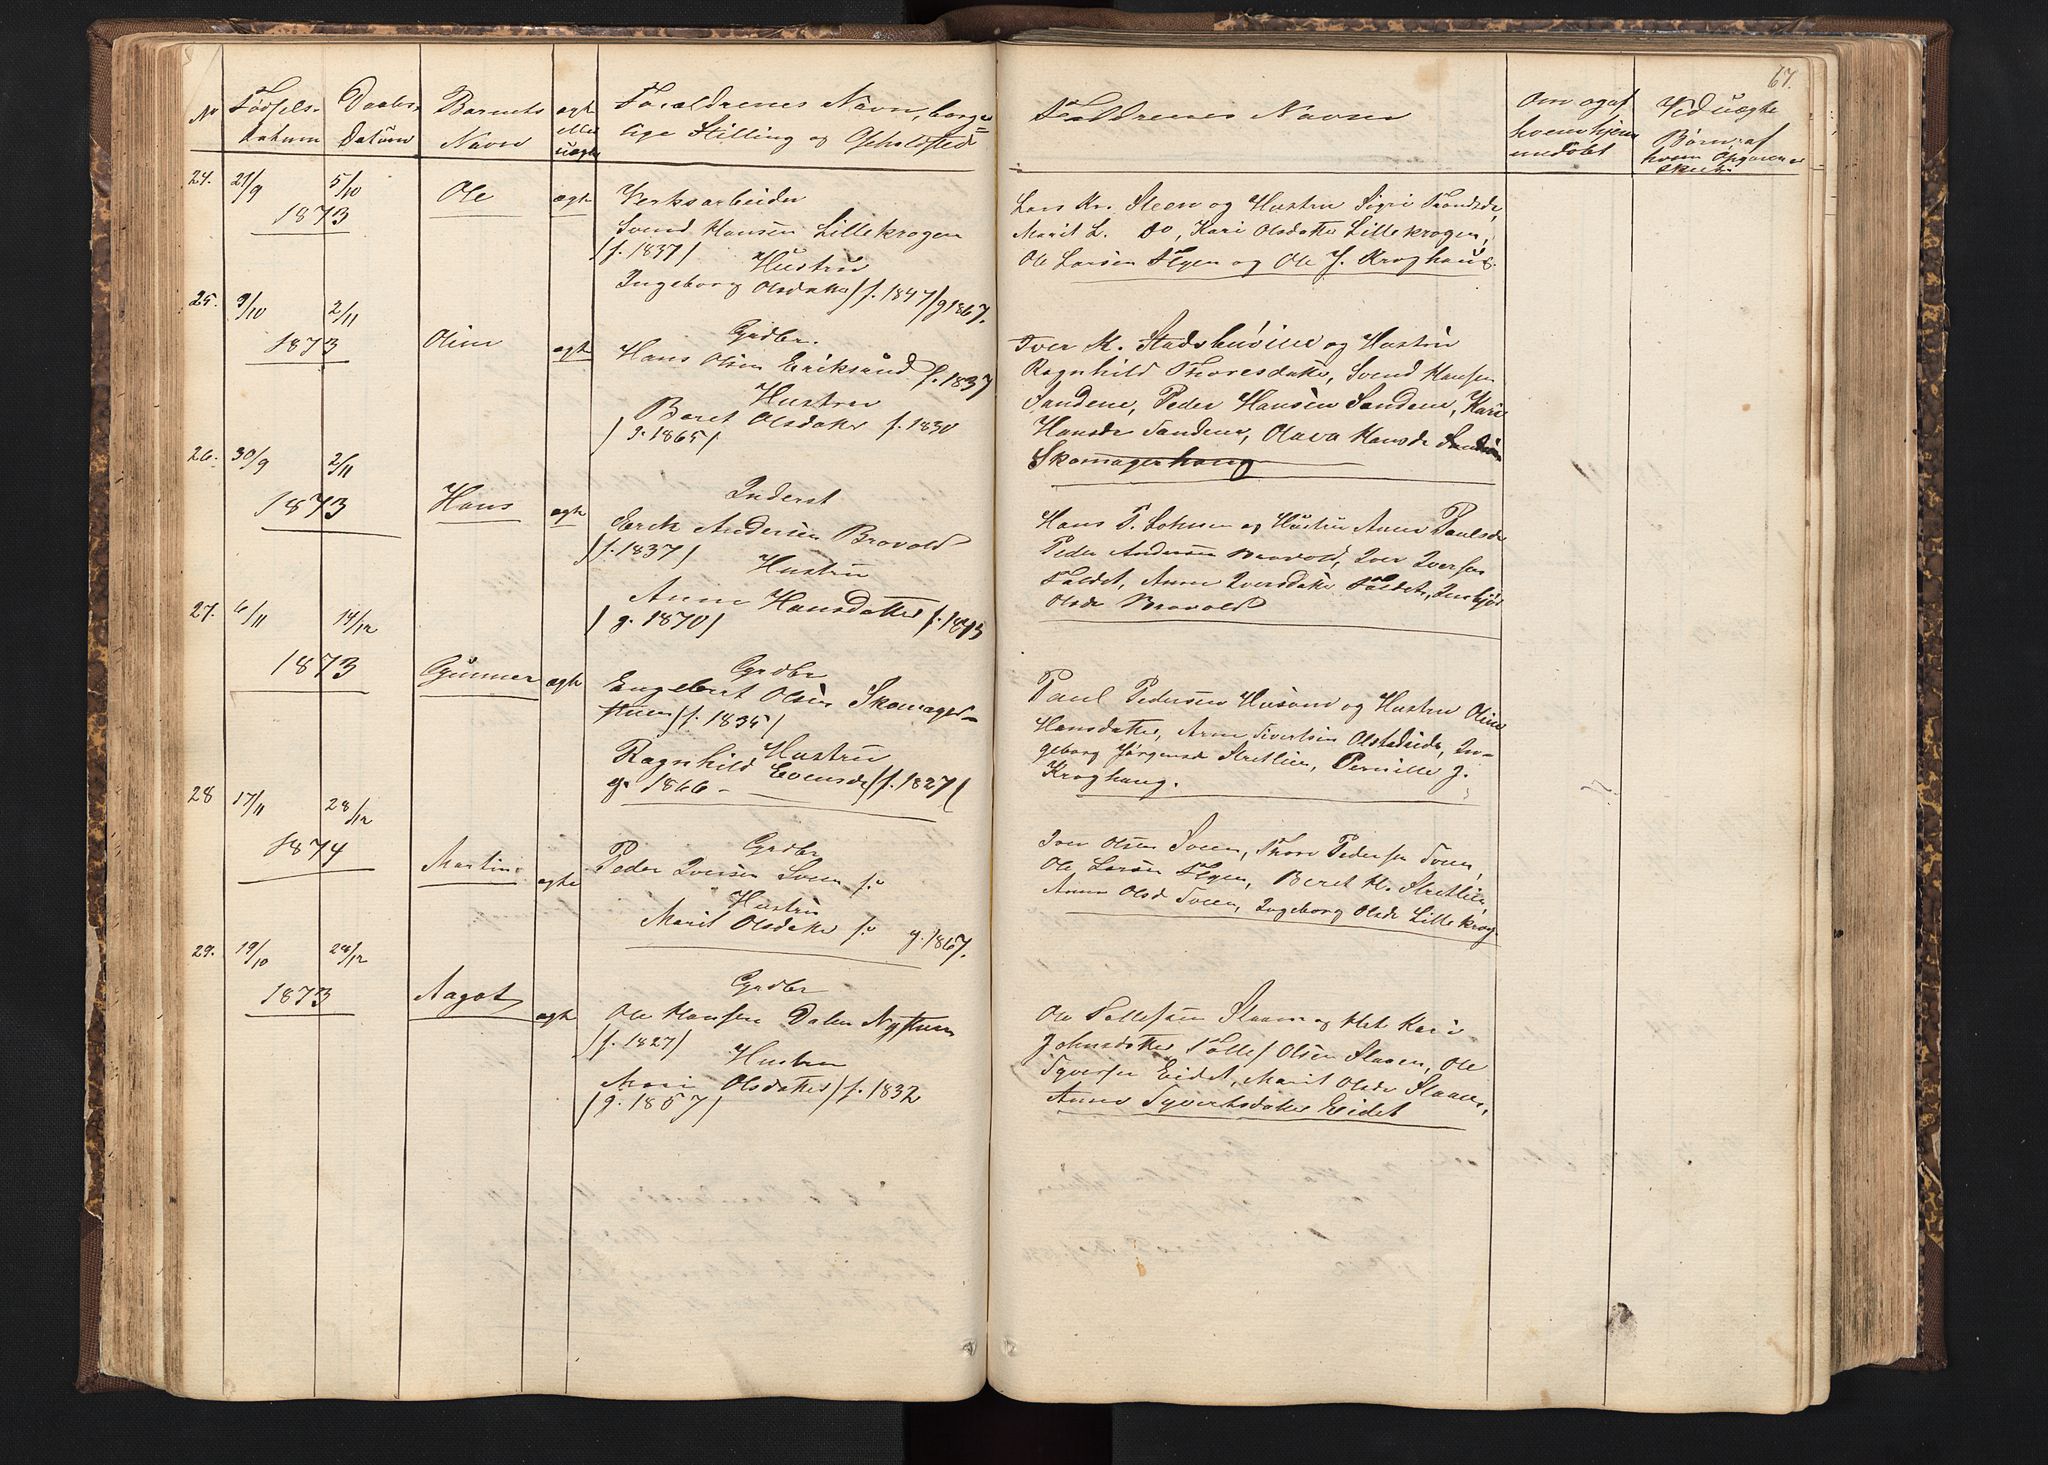 67.
No
Fødsels-
Datum
Daabs-
Datum
Barnets
Navn
ægte
eller
uægte
Forældrenes Navn, borger=
lige Stilling og Opholdsted
Fadrenes Navne
Om og af
hvem hjem
medøbt
Ved uægte
Børn, af
hvem Opgaven er
skeet.
24. 21/9 5/10
1873
Ole
ægte
Verksarbeider
Svend Hansen Lillekrogen
/f. 1837/
Hustru
Ingeborg Olsdatter /f. 1847/ g 1867.
Lars Kr. Steen og Hustru Sigri Trondsd.,
Marit L. Do, Kari Olsdatter Lillekrogen,
Ole Larsen Flyen og Ole J. Kroghaug.
25. 9/10 2/11
1873
Oline
ægte
Grdbr.
Hans Olsen Eriksrud f. 1837
Hustru
Beret Olsdatter f. 1830
/g. 1865/
Iver K. Stadsbuøien og Hustru
Ragnhild Thoresdatter, Svend Hansen
Sandene, Peder Hansen Sandene, Kari
Hansdr Sandene, Olava Hansdr
Skomagerhaug
26. 30/9 2/11
1873
Hans
ægte
Inderst
Erik Andersen Brovold
/f. 1837/
Hustru
Anne Hansdatter f. 1843
/g. 1870/
Hans T. Lohnen og Hustru Anne Paulsdr
Peder Andersen Brovold, Iver Iversen
Faldet, Anne Iversdatter Faldet,
Olsdr Brovold
27. 6/11 14/12
1873
Gunner
ægte
Grdbr
Engebret Olsen Skomager-
stuen /f. 1835/
Hustru
Ragnhild Evensdr /f. 1827/
g. 1866 -
Paul Pedersen Husom og Hustru Oline
Hansdatter, Arne Sivertsen, In-
geborg Jørgensdr Stretlien, Pernille J.
Kroghaug.
28 17/11 28/12
1874
Martin
ægte
Grdbr
Peder Iversen Sveen f.
Hustru
Marit Olsdatter f. g. 1867.
Iver Olsen Sveen, Thore Pedersen Sveen,
Ole Larsen Flyen, Beret H. Stretlien,
Anne Olsd Sveen, Ingeborg Olsdr Lillekrog.
29. 19/10 28/12
1873
Aagot
ægte
Grdbr
Ole Hansen Dalen Nystuen
/f. 1827/
Hustru
Mari Olsdatter /f. 1832
/g. 1857/
Ole Tollefsen Slaaen og Hst. Kari
Johnsdatter, Tollef Olsen Slaaen, Ole
Syversen Eidet, Marit Olsdr Slaaen,
Anne Syvertsdatter Eidet